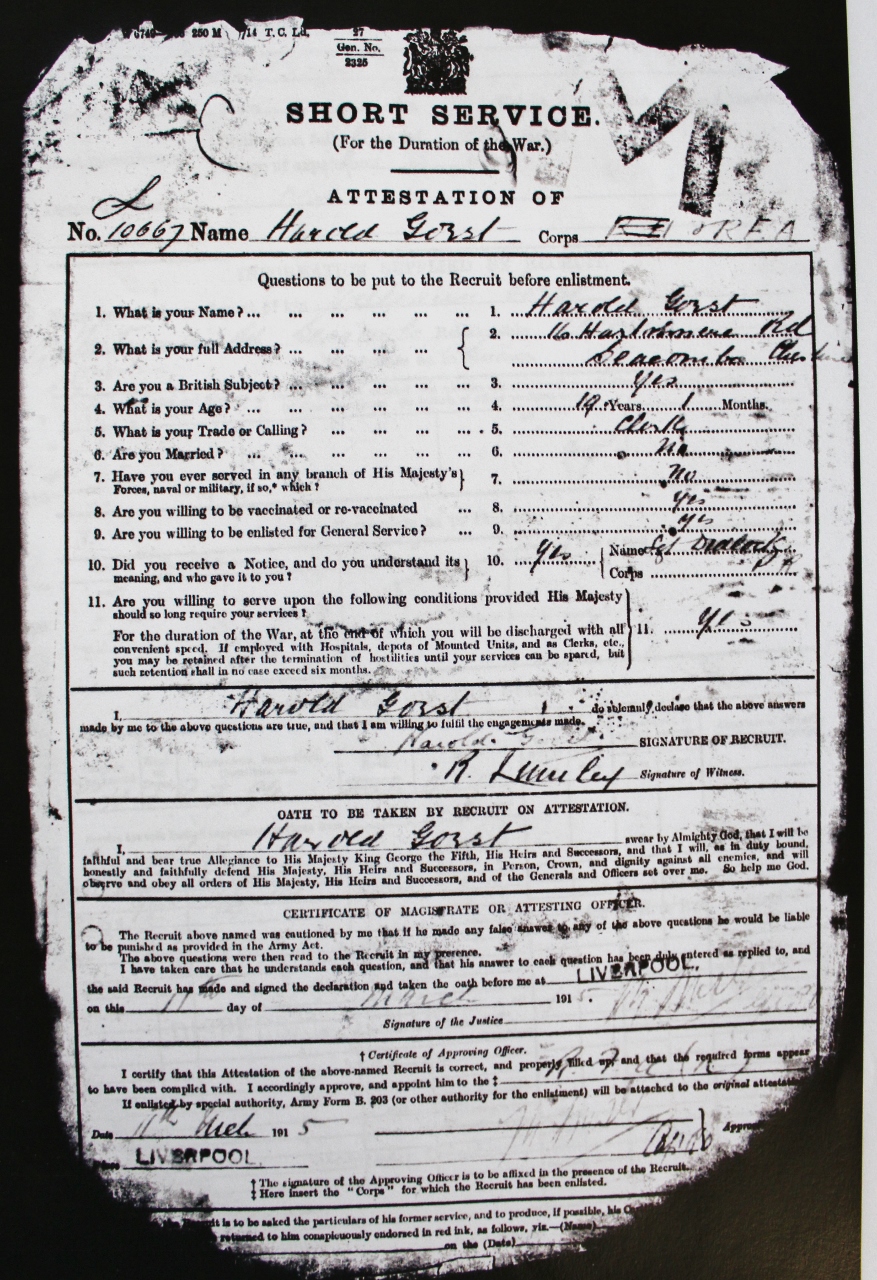 250 M 7/14 T. C. Ld. 27
Gen. No.
2325
SHORT SERVICE.
(For the Duration of the War.)
ATTESTATION OF
L
No. 10667 Name Harold Gorst Corps R.F.A
Questions to be put to the Recruit before enlistment.
1. What is your Name? ... 1. Harold Gorst
2. What is your full Address? ... 2. 16 Haslemere Rd
Seacombe Cheshire
3. Are you a British Subject? ... 3. Yes
4. What is your Age? ... 4. 19 Years 1 Months.
5. What is your Trade or Calling? ... 5. Clerk
6. Are you Married? ... 6. No
7. Have you ever served in any branch of His Majesty's
Forces, naval or military, if so,* which? 7. No
8. Are you willing to be vaccinated or re-vaccinated ... 8. Yes
9. Are you willing to be enlisted for General Service? ... 9. Yes
10. Did you receive a Notice, and do you understand its
meaning, and who gave it to you? 10. Yes Name Sgt
Corps
11. Are you willing to serve upon the following conditions provided His Majesty
should so long require your services?
For the duration of the War, at the end of which you will be discharged with all 11. Yes
convenient speed. If employed with Hospitals, depots of Mounted Units, and as Clerks, etc.,
you may be retained after the termination of hostilities until your services can be spared, but
such retention shall in no case exceed six months.
I, Harold Gorst do solemnly declare that the above answers
made by me to the above questions are true, and that I am willing to fulfil the engagements made.
Harold Gorst SIGNATURE OF RECRUIT.
R. Lumley Signature of Witness.
OATH TO BE TAKEN BY RECRUIT ON ATTESTATION.
I, Harold Gorst swear by Almighty God, that I will be
faithful and bear true Allegiance to His Majesty King George the Fifth, His Heirs and Successors, and that I will, as in duty bound,
honestly and faithfully defend His Majesty, His Heirs and Successors, in Person, Crown, and dignity against all enemies, and will
observe and obey all orders of His Majesty, His Heirs and Successors, and of the Generals and Officers set over me. So help me God.
CERTIFICATE OF MAGISTRATE OR ATTESTING OFFICER.
The Recruit above named was cautioned by me that if he made any false answer to any of the above questions he would be liable
to be punished as provided in the Army Act.
The above questions were then read to the Recruit in my presence.
I have taken care that he understands each question, and that his answer to each question has been duly entered as replied to, and
the said Recruit has made and signed the declaration and taken the oath before me at LIVERPOOL.
on this 11th day of March 1915.
Signature of the Justice
† Certificate of Approving Officer.
I certify that this Attestation of the above-named Recruit is correct, and properly filled up, and that the required forms appear
to have been complied with. I accordingly approve, and appoint him to the ‡
If enlisted by special authority, Army Form B. 203 (or other authority for the enlistment) will be attached to the original attestation
Date 11th Mch 1915
LIVERPOOL.
† The signature of the Approving Officer is to be affixed in the presence of the Recruit.
‡ Here insert the "Corps" for which the Recruit has been enlisted.
it is to be asked the particulars of his former service, and to produce, if possible, his
returned to him conspicuously endorsed in red ink, as follows, viz.—(Name)
on the (Date)